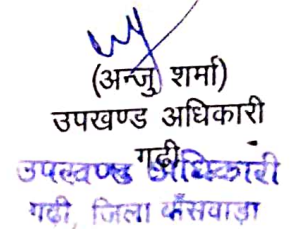 (अन्जु शर्मा)
उपखण्ड अधिकारी
गढी
उपखण्ड अधिकारी
गढी, जिला बाँसवाड़ा